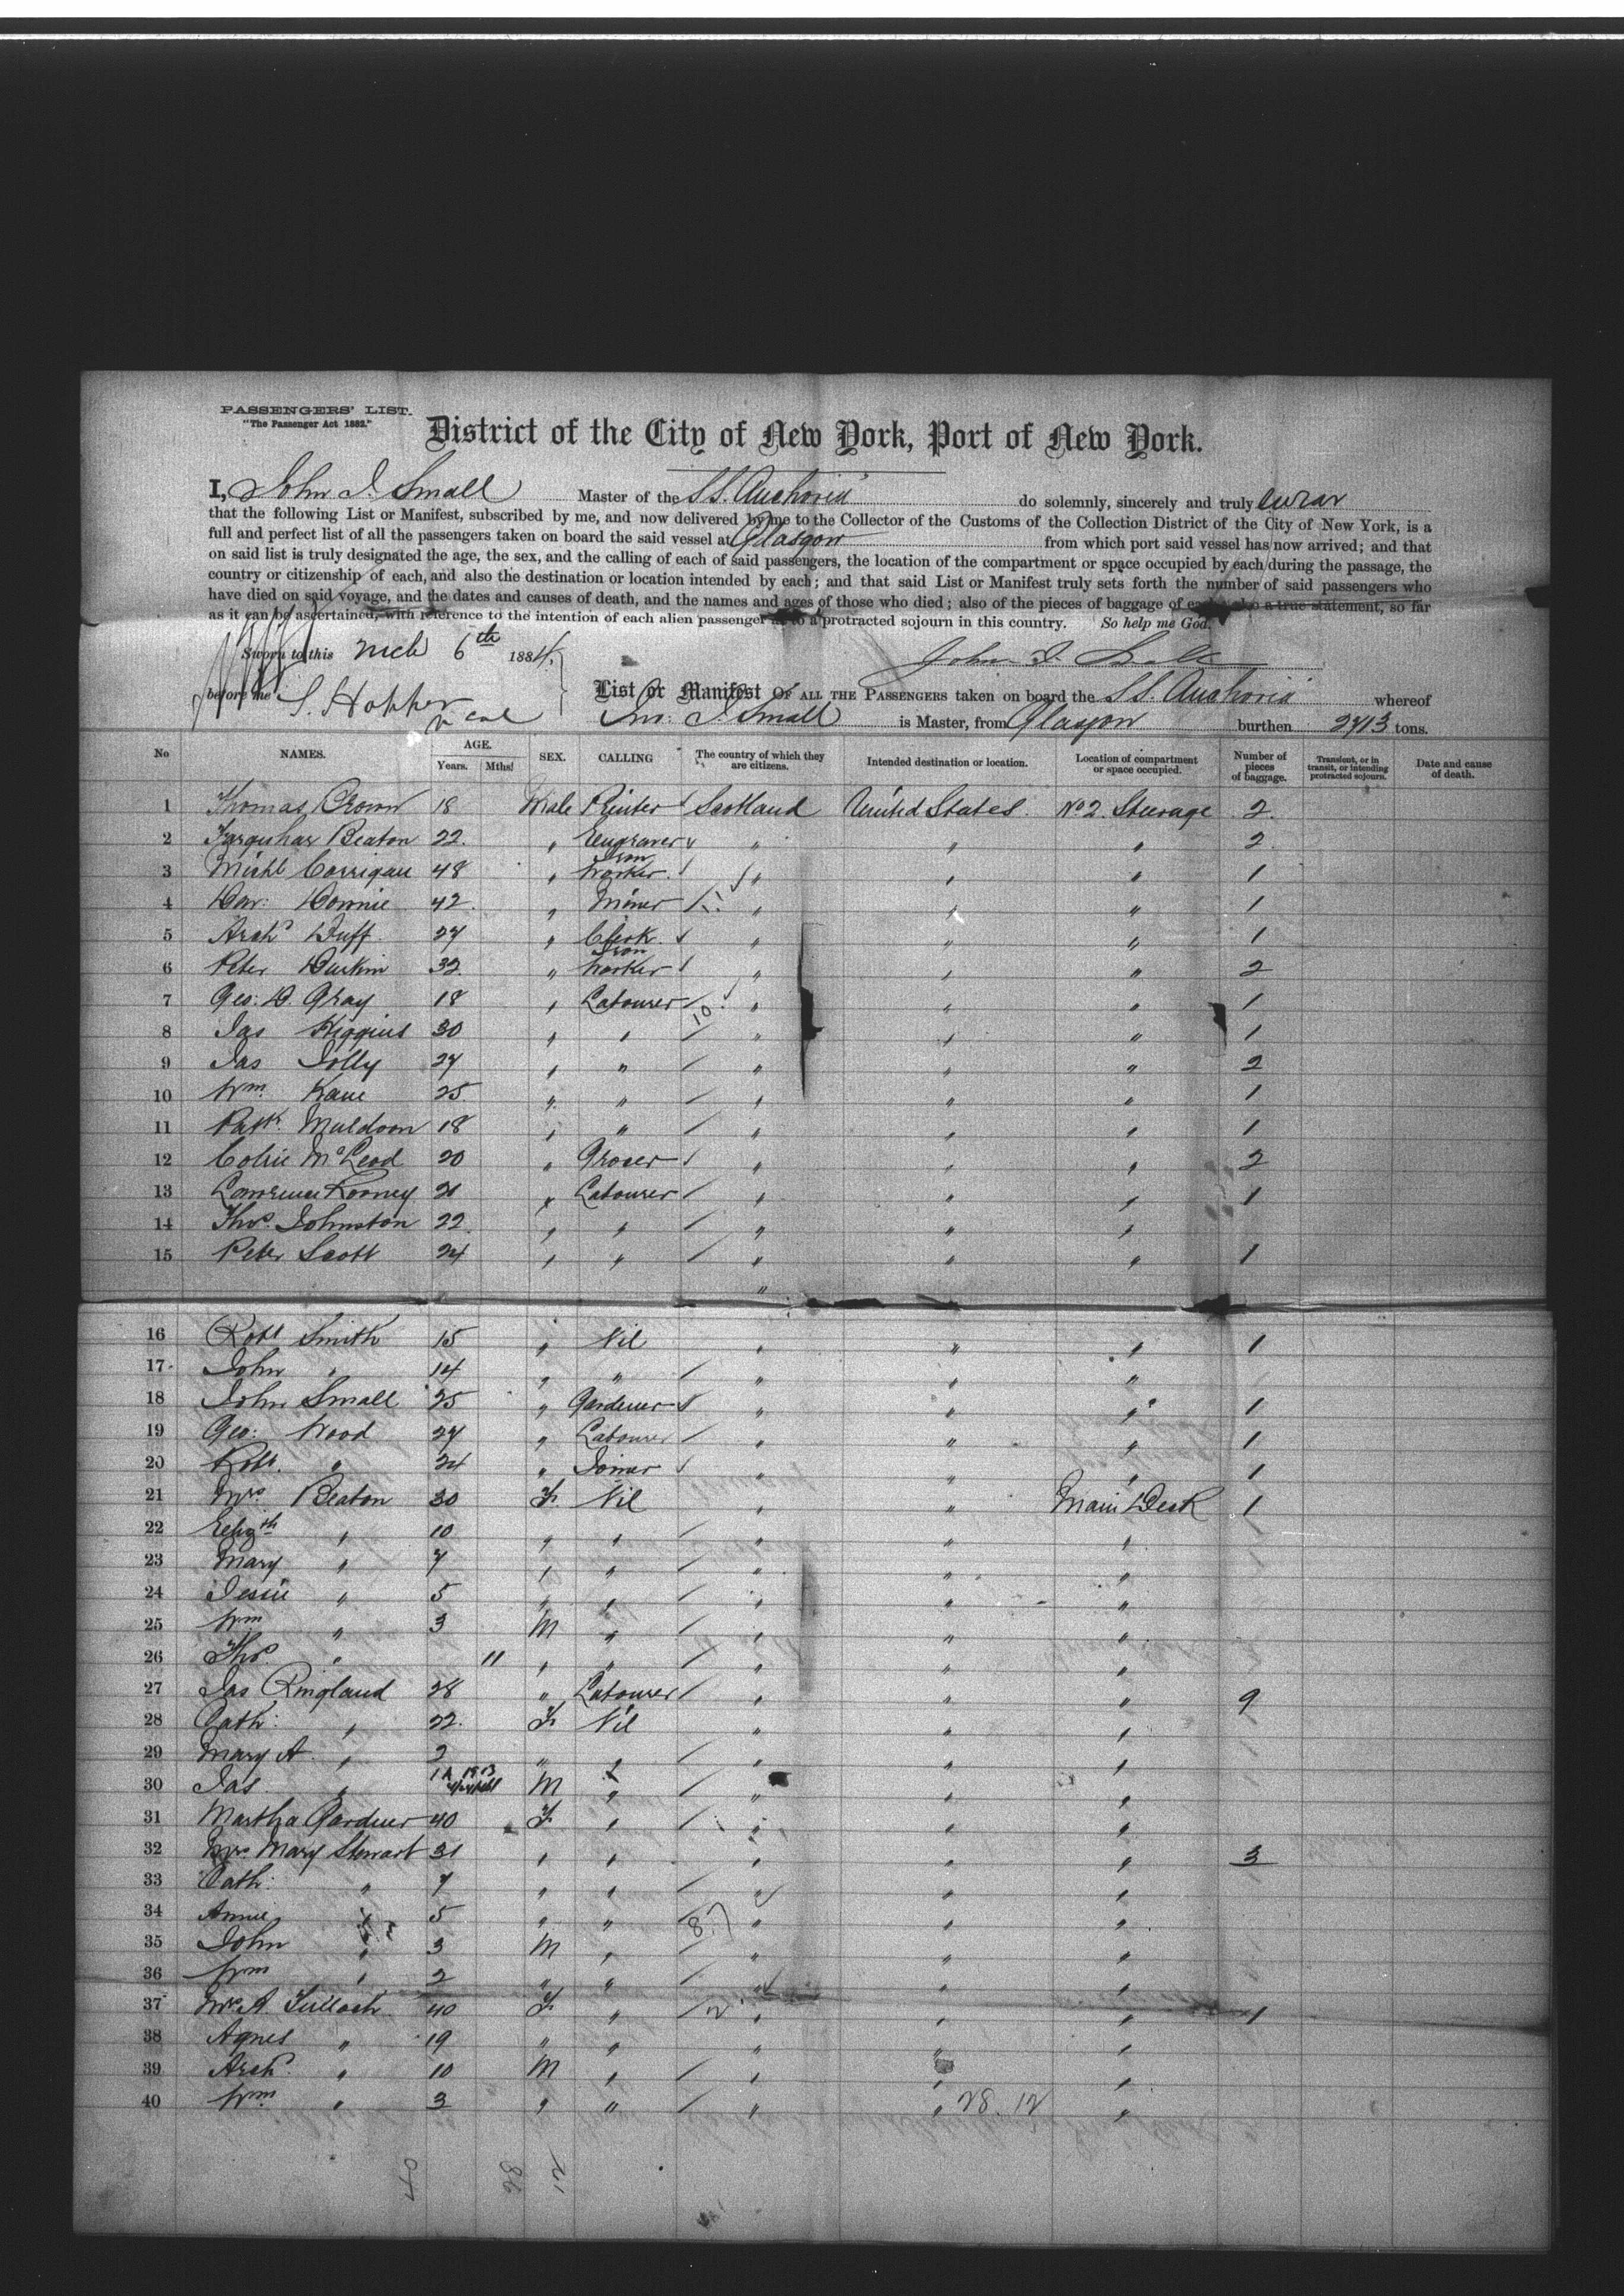 PASSENGERS' LIST.
"The Passenger Act 1882."
District of the City of New York, Port of New York.
I, John J. Small Master of the SS. Anchoria do solemnly, sincerely and truly swear
that the following List or Manifest, subscribed by me, and now delivered by me to the Collector of the Customs of the Collection District of the City of New York, is a
full and perfect list of all the passengers taken on board the said vessel at Glasgow from which port said vessel has now arrived; and that
on said list is truly designated the age, the sex, and the calling of each of said passengers, the location of the compartment or space occupied by each during the passage, the
country or citizenship of each, and also the destination or location intended by each; and that said List or Manifest truly sets forth the number of said passengers who
have died on said voyage, and the dates and causes of death, and the names and ages of those who died; also of the pieces of baggage of each also a true statement, so far
as it can be ascertained, with reference to the intention of each alien passenger as to a protracted sojourn in this country. So help me God.
Sworn to this Mch 6th 1884,
before me S. Hopper
List or Manifest OF ALL THE PASSENGERS taken on board the SS. Anchoria whereof
Jno. J. Small is Master, from Glasgow burthen 2713 tons.
No NAMES. AGE. Years. Mths. SEX. CALLING The country of which they are citizens. Intended destination or location. Location of compartment or space occupied. Number of pieces of baggage. Transient, or in transit, or intending protracted sojourn. Date and cause of death.
1 Thomas 18 Male Printer Scotland United States No 2 Steerage 2
2 Farquhar Beaton 22 " Engraver " " " 2
3 Michl Corrigan 48 " Iron Worker " " " 1
4 Dav: 42 " Miner " " " 1
5 Archd Duff 27 " Clerk " " " 1
6 Peter Durkin 32 " Iron Worker " " " 2
7 Geo: D. Gray 18 " Labourer 10 " " " 1
8 Jas Higgins 30 " " " " " 1
9 Jas Jolly 27 " " " " " 2
10 Wm Kane 25 " " " " " 1
11 Patk Muldoon 18 " " " " " 1
12 Colin McLeod 20 " Grocer " " " 2
13 Lawrence Rooney 21 " Labourer " " " 1
14 Thos. Johnston 22 " " " " "
15 Peter Scott 24 " " " " " 1
"
16 Robt Smith 15 " Nil " " " 1
17 John " 14 " " " " "
18 John Small 25 " Gardener " " " 1
19 Geo: Wood 27 " Labourer " " " 1
20 Robt. " 24 " Joiner " " " 1
21 Mrs Beaton 30 F. Nil " " Main Deck 1
22 Elizth " 10 " " " " "
23 Mary " 7 " " " " "
24 Jessie " 5 " " " " "
25 Wm " 3 M " " " "
26 Thos. " 11 " " " " "
27 Jas Ringland 28 " Labourer " " " 9
28 Cath: " 22 F. Nil " " "
29 Mary A. " 2 " " " " "
30 Jas " M " " " "
31 Martha Gardner 40 F. " " " "
32 Mrs Mary Stewart 31 " " " " " 3
33 Cath: " 7 " " " " "
34 Annie " 5 " " 8 " " "
35 John " 3 M " " " "
36 Wm " 2 " " " " "
37 Mrs A. Tulloch 40 F. " " " " 1
38 Agnes " 19 " " " " "
39 Archd " 10 M " " " "
40 Wm " 3 " " " " 28.12 "